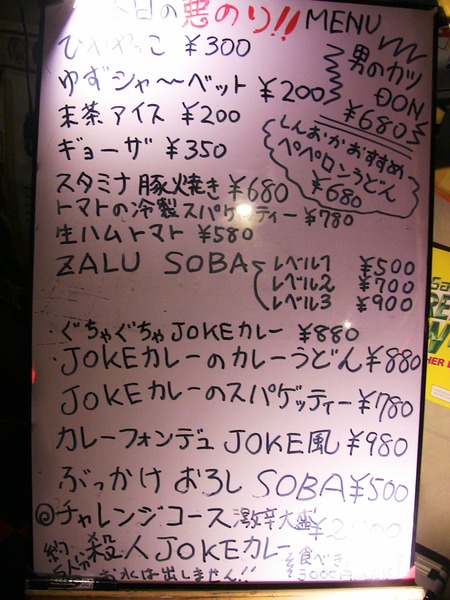 本日の悪のり!! MENU
ひややっこ ¥300
ゆずシャ〜〜ベット ¥200
抹茶アイス ¥200
ギョーザ ¥350
男のカツ
DON
¥680
しんおかおすすめ
ペペロンうどん
¥680
スタミナ豚焼き ¥680
トマトの冷製スパゲッティー ¥780
生ハムトマト ¥580
ZALU SOBA
レベル1 ¥500
レベル2 ¥700
レベル3 ¥900
・ぐちゃぐちゃJOKEカレー ¥880
・JOKEカレーのカレーうどん ¥880
JOKEカレーのスパゲッティー ¥780
カレーフォンデュ JOKE風 ¥980
ぶっかけおろし SOBA ¥500
◎チャレンジコース 激辛大盛
約5人分 殺人JOKEカレー
お水は出しません!!
食べき
3000円